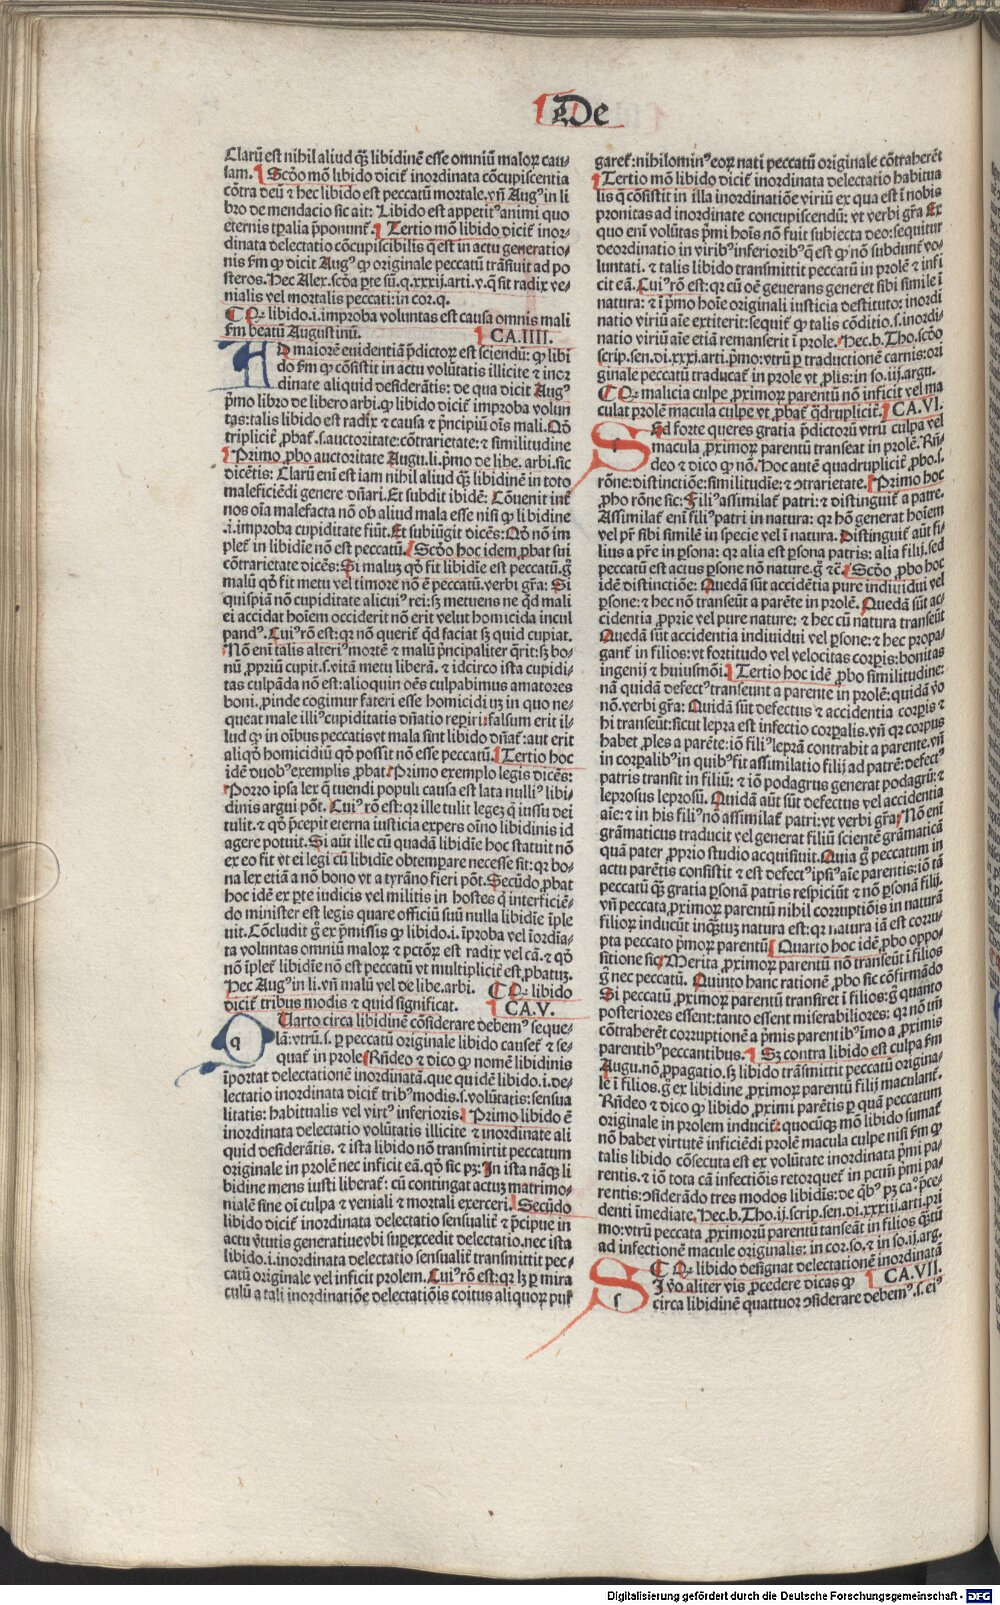 De
Clarū est nihil aliud q̄ȝ libidinē esse omniū maloꝝ cau-
sam. Scdo mō libido dicit̄ inordinata cōcupiscentia
cōtra deū ⁊ hec libido est peccatū mortale. vn̄ Augꝰ in li
bro de mendacio sic ait: Libido est appetitꝰ animi quo
eternis tꝑalia p̄ponunt̄. Tertio mō libido dicit̄ inor-
dinata delectatio cōcupiscibilis q̄ est in actu generatio-
nis ẜm ꝙ dicit Augꝰ ꝙ originale peccatū trāsiuit ad po
steros. Hec Alex. scda ꝑte sū. q. xxxij. arti. v. q̄ sit radix ve-
nialis vel mortalis peccati: in cor. q.
Qꝛ libido .i. improba voluntas est causa omnis mali
ẜm beatū Augustinū. CA. IIII.
AD maiorē euidentiā p̄dictoꝝ est sciendū: ꝙ libi
do ẜm ꝙ cōsistit in actu volūtatis illicite ⁊ inor
dinate aliquid desiderātis: de qua dicit Augꝰ
p̄mo libro de libero arbi. ꝙ libido dicit̄ improba volun
tas: talis libido est radix ⁊ causa ⁊ p̄ncipiū oīs mali. Qd̄
triplicit̄ ꝓbat̄. s. auctoritate: cōtrarietate: ⁊ similitudine
Primo ꝓbo auctoritate Augu. li. p̄mo de libe. arbi. sic
dicētis: Clarū eni est iam nihil aliud q̄ȝ libidinē in toto
maleficēdi genere dn̄ari. Et subdit ibidē: Cōuenit int̄
nos oīa malefacta nō ob aliud mala esse nisi ꝙ libidine
.i. improba cupiditate fiūt. Et subiūgit dicēs: Qd̄ nō im
plet̄ in libidie nō est peccatū. Scdo hoc idem ꝓbat sui
cōtrarietate dicēs: Si maluȝ qd̄ fit libidie est peccatū. g̊
malū qd̄ fit metu vel timore nō ē peccatū. verbi gr̄a: Si
quispiā nō cupiditate alicuiꝰ rei: sȝ metuens ne qd̄ mali
ei accidat hoīem occiderit nō erit velut homicida incul
pandꝰ. Cuiꝰ rō est: qꝛ nō querit q̄d faciat sȝ quid cupiat.
Nō eni talis alteriꝰ mortē ⁊ malū p̄ncipaliter q̄rit: sȝ bo-
nū ꝓpriū cupit. s. vitā metu liberā. ⁊ idcirco ista cupidi-
tas culpāda nō est: alioquin oēs culpabimus amatores
boni. ꝓinde cogimur fateri esse homicidiuȝ in quo ne-
queat male illiꝰ cupiditatis dn̄atio reperiri: falsum erit il-
lud ꝙ in oībus peccatis vt mala sint libido dn̄at̄: aut erit
aliqd̄ homicidiū qd̄ possit nō esse peccatū. Tertio hoc
idē duobꝰ exemplis ꝓbat. Primo exemplo legis dicēs:
Porro ipsa lex q̄ tuendi populi causa est lata nulliꝰ libi-
dinis argui pōt. Cuiꝰ rō est: qꝛ ille tulit legeȝ q̄ iussu dei
tulit. ⁊ qd̄ p̄cepit eterna iusticia expers oīno libidinis id
agere potuit. Si aūt ille cū quadā libidie hoc statuit nō
ex eo fit vt ei legi cū libidie obtemꝑare necesse sit: qꝛ bo-
na lex etiā a nō bono vt a tyrāno fieri pōt. Secūdo ꝓbat
hoc idē ex ꝑte iudicis vel militis in hostes q̄ interficiē-
do minister est legis quare officiū suū nulla libidie īple
uit. Cōcludit g̊ ex p̄missis ꝙ libido .i. īproba vel īordīa-
ta voluntas omniū maloꝝ ⁊ pctōꝝ est radix vel cā. ⁊ qd̄
nō īplet̄ libidie nō est peccatū vt multiplicit̄ est ꝓbatuȝ.
Hec Augꝰ in li. vn̄ malū vel de libe. arbi. Qꝛ libido
dicit̄ tribus modis ⁊ quid significat. CA. V.
QUarto circa libidinē cōsiderare debemꝰ seque-
lā: vtrū. s. ꝑ peccatū originale libido causet̄ ⁊ se-
quat̄ in prole. Rn̄deo ⁊ dico ꝙ nomē libidinis
īportat delectationē inordinatā. que quidē libido .i. de-
lectatio inordinata dicit̄ tribꝰ modis. s. volūtatis: sensua
litatis: habitualis vel virtꝰ inferioris. Primo libido ē
inordinata delectatio volūtatis illicite ⁊ inordinate ali
quid desiderātis. ⁊ ista libido nō transmittit peccatum
originale in prolē nec inficit eā. qd̄ sic pȝ: In ista nāqȝ li
bidine mens iusti liberat̄: cū contingat actuȝ matrimo-
nialē sine oī culpa ⁊ veniali ⁊ mortali exerceri. Secūdo
libido dicit̄ inordinata delectatio sensualit̄ ⁊ p̄cipue in
actu v̄tutis generatiue vbi suꝑexcedit delectatio. nec ista
libido .i. inordinata delectatio sensualit̄ transmittit pec-
catū originale vel inficit prolem. Cuiꝰ rō est: qꝛ lȝ ꝑ mira
culū a tali inordinatiōe delectatiōis coitus aliquoꝝ pur
garet̄: nihilominꝰ eoꝝ nati peccatū originale cōtraherēt
Tertio mō libido dicit̄ inordinata delectatio habitua
lis q̄ cōsistit in illa inordinatiōe viriū ex qua est ī nobis
pronitas ad inordinate concupiscendū: vt verbi gr̄a Ex
quo eni volūtas p̄mi hoīs nō fuit subiecta deo: sequitur
deordinatio in viribꝰ inferioribꝰ q̄ est ꝙ nō subdunt̄ vo-
luntati. ⁊ talis libido transmittit peccatū in prolē ⁊ infi
cit eā. Cuiꝰ rō est: qꝛ cū oē generans generet sibi simile ī
natura: ⁊ ī p̄mo hoīe originali iusticia destitutoꝛ inordi
natio viriū aīe extiterit: sequit̄ ꝙ talis cōditio. s. inordi-
natio viriū aīe etiā remanserit ī prole. Hec. b. Tho. scdo
scrip. sen. di. xxxi. arti. p̄mo: vtrū ꝑ traductionē carnis: ori
ginale peccatū traducat̄ in prole vt ꝓlis: in so. iij. argu.
Qꝛ malicia culpe ꝓximoꝝ parentū nō inficit vel ma
culat prolē macula culpe vt ꝓbat̄ q̄druplicit̄. CA. VI.
SEd forte queres gratia p̄dictorū vtrū culpa vel
macula ꝓximoꝝ parentū transeat in prolē. Rn̄
deo ⁊ dico ꝙ nō. Hoc autē quadruplicit̄ ꝓbo. s.
rōne: distinctiōe: similitudie: ⁊ ɔtrarietate. Primo hoc
ꝓbo rōne sic: Filiꝰ assimilat̄ patri: ⁊ distinguit̄ a patre.
Assimilat̄ eni filiꝰ patri in natura: qꝛ hō generat hoīem
vel pr̄ sibi similē in specie vel ī natura. Distinguit̄ aūt fi-
lius a pr̄e in ꝑsona: qꝛ alia est ꝑsona patris: alia filij. sed
peccatū est actus ꝑsone nō nature. g̊ ⁊c̄. Scdo ꝓbo hoc
idē distinctiōe: Quedā sūt accidētia pure indiuidui vel
ꝑsone: ⁊ hec nō transeūt a parēte in prolē. Quedā sūt ac-
cidentia ꝓprie vel pure nature: ⁊ hec cū natura transeūt
Quedā sūt accidentia indiuidui vel ꝑsone: ⁊ hec propa-
gant̄ in filios: vt fortitudo vel velocitas corꝑis: bonitas
ingenij ⁊ huiusmōi. Tertio hoc idē ꝓbo similitudine:
nā quidā defectꝰ transeunt a parente in prolē: quidā v̄o
nō. verbi gr̄a: Quidā sūt defectus ⁊ accidentia corꝑis ⁊
hi transeūt: sicut lepra est infectio corꝑalis. vn̄ qꝛ corpus
habet ꝓles a parēte: iō filiꝰ leprā contrahit a parente. vn̄
in corꝑalibꝰ in quibꝰ fit assimilatio filij ad patrē: defectꝰ
patris transit in filiū: ⁊ iō podagrus generat podagrū: ⁊
leprosus leprosū. Quidā aūt sūt defectus vel accidentia
aīe: ⁊ in his filiꝰ nō assimilat̄ patri: vt verbi gr̄a: Nō eni
grāmaticus traducit vel generat filiū scientē grāmaticā
quā pater ꝓprio studio acquisiuit. Quia g̊ peccatum in
actu parētis consistit ⁊ est defectꝰ ipsiꝰ aīe parentis: iō tā
peccatū qȝ gratia ꝑsonā patris respiciūt ⁊ nō ꝑsonā filij.
vn̄ peccata ꝓximoꝝ parentū nihil corruptiōis in naturā
filioꝝ inducūt inqȝtuȝ natura est: qꝛ natura iā est corru-
pta peccato p̄moꝝ parentū. Quarto hoc idē ꝓbo oppo-
sitione sic: Merita ꝓximoꝝ parentū nō transeūt ī filios
g̊ nec peccatū. Quinto hanc rationē ꝓbo sic cōfirmādo
Si peccatū ꝓximoꝝ parentū transiret ī filios: g̊ quanto
posteriores essent: tanto essent miserabiliores: qꝛ nō tm̄
cōtraherēt corruptionē a p̄mis parentibꝰ īmo a ꝓximis
parentibꝰ peccantibus. Sȝ contra libido est culpa ẜm
Augu. nō ꝓpagatio. sȝ libido trāsmittit peccatū origina-
le ī filios. g̊ ex libidine ꝓximoꝝ parentū filij maculant̄.
Rn̄deo ⁊ dico ꝙ libido ꝓximi parētis ꝑ quā peccatum
originale in prolem inducit̄: quocūqȝ mō libido sumat̄
nō habet virtutē inficiēdi prolē macula culpe nisi ẜm ꝙ
talis libido cōsecuta est ex volūtate inordinata p̄mi pa-
rentis. ⁊ iō tota cā infectiōis retorquet̄ in pctm̄ p̄mi pa-
rentis: ɔsiderādo tres modos libidīs: de q̄bꝰ pȝ caᵒ. p̄ce-
denti īmediate. Hec. b. Tho. ij. scrip. sen. di. xxxiij. arti. pri
mo: vtrū peccata ꝓximorū parentū trāseāt in filios q̄tū
ad infectionē macule originalis: in cor. so. ⁊ in so. ij. arg.
Qꝛ libido designat delectationē inordinatā
SI v̄o aliter vis ꝓcedere dicas ꝙ CA. VII.
circa libidinē quattuoꝛ ɔsiderare debemꝰ. s. eiꝰ
Digitalisierung gefördert durch die Deutsche Forschungsgemeinschaft - DFG